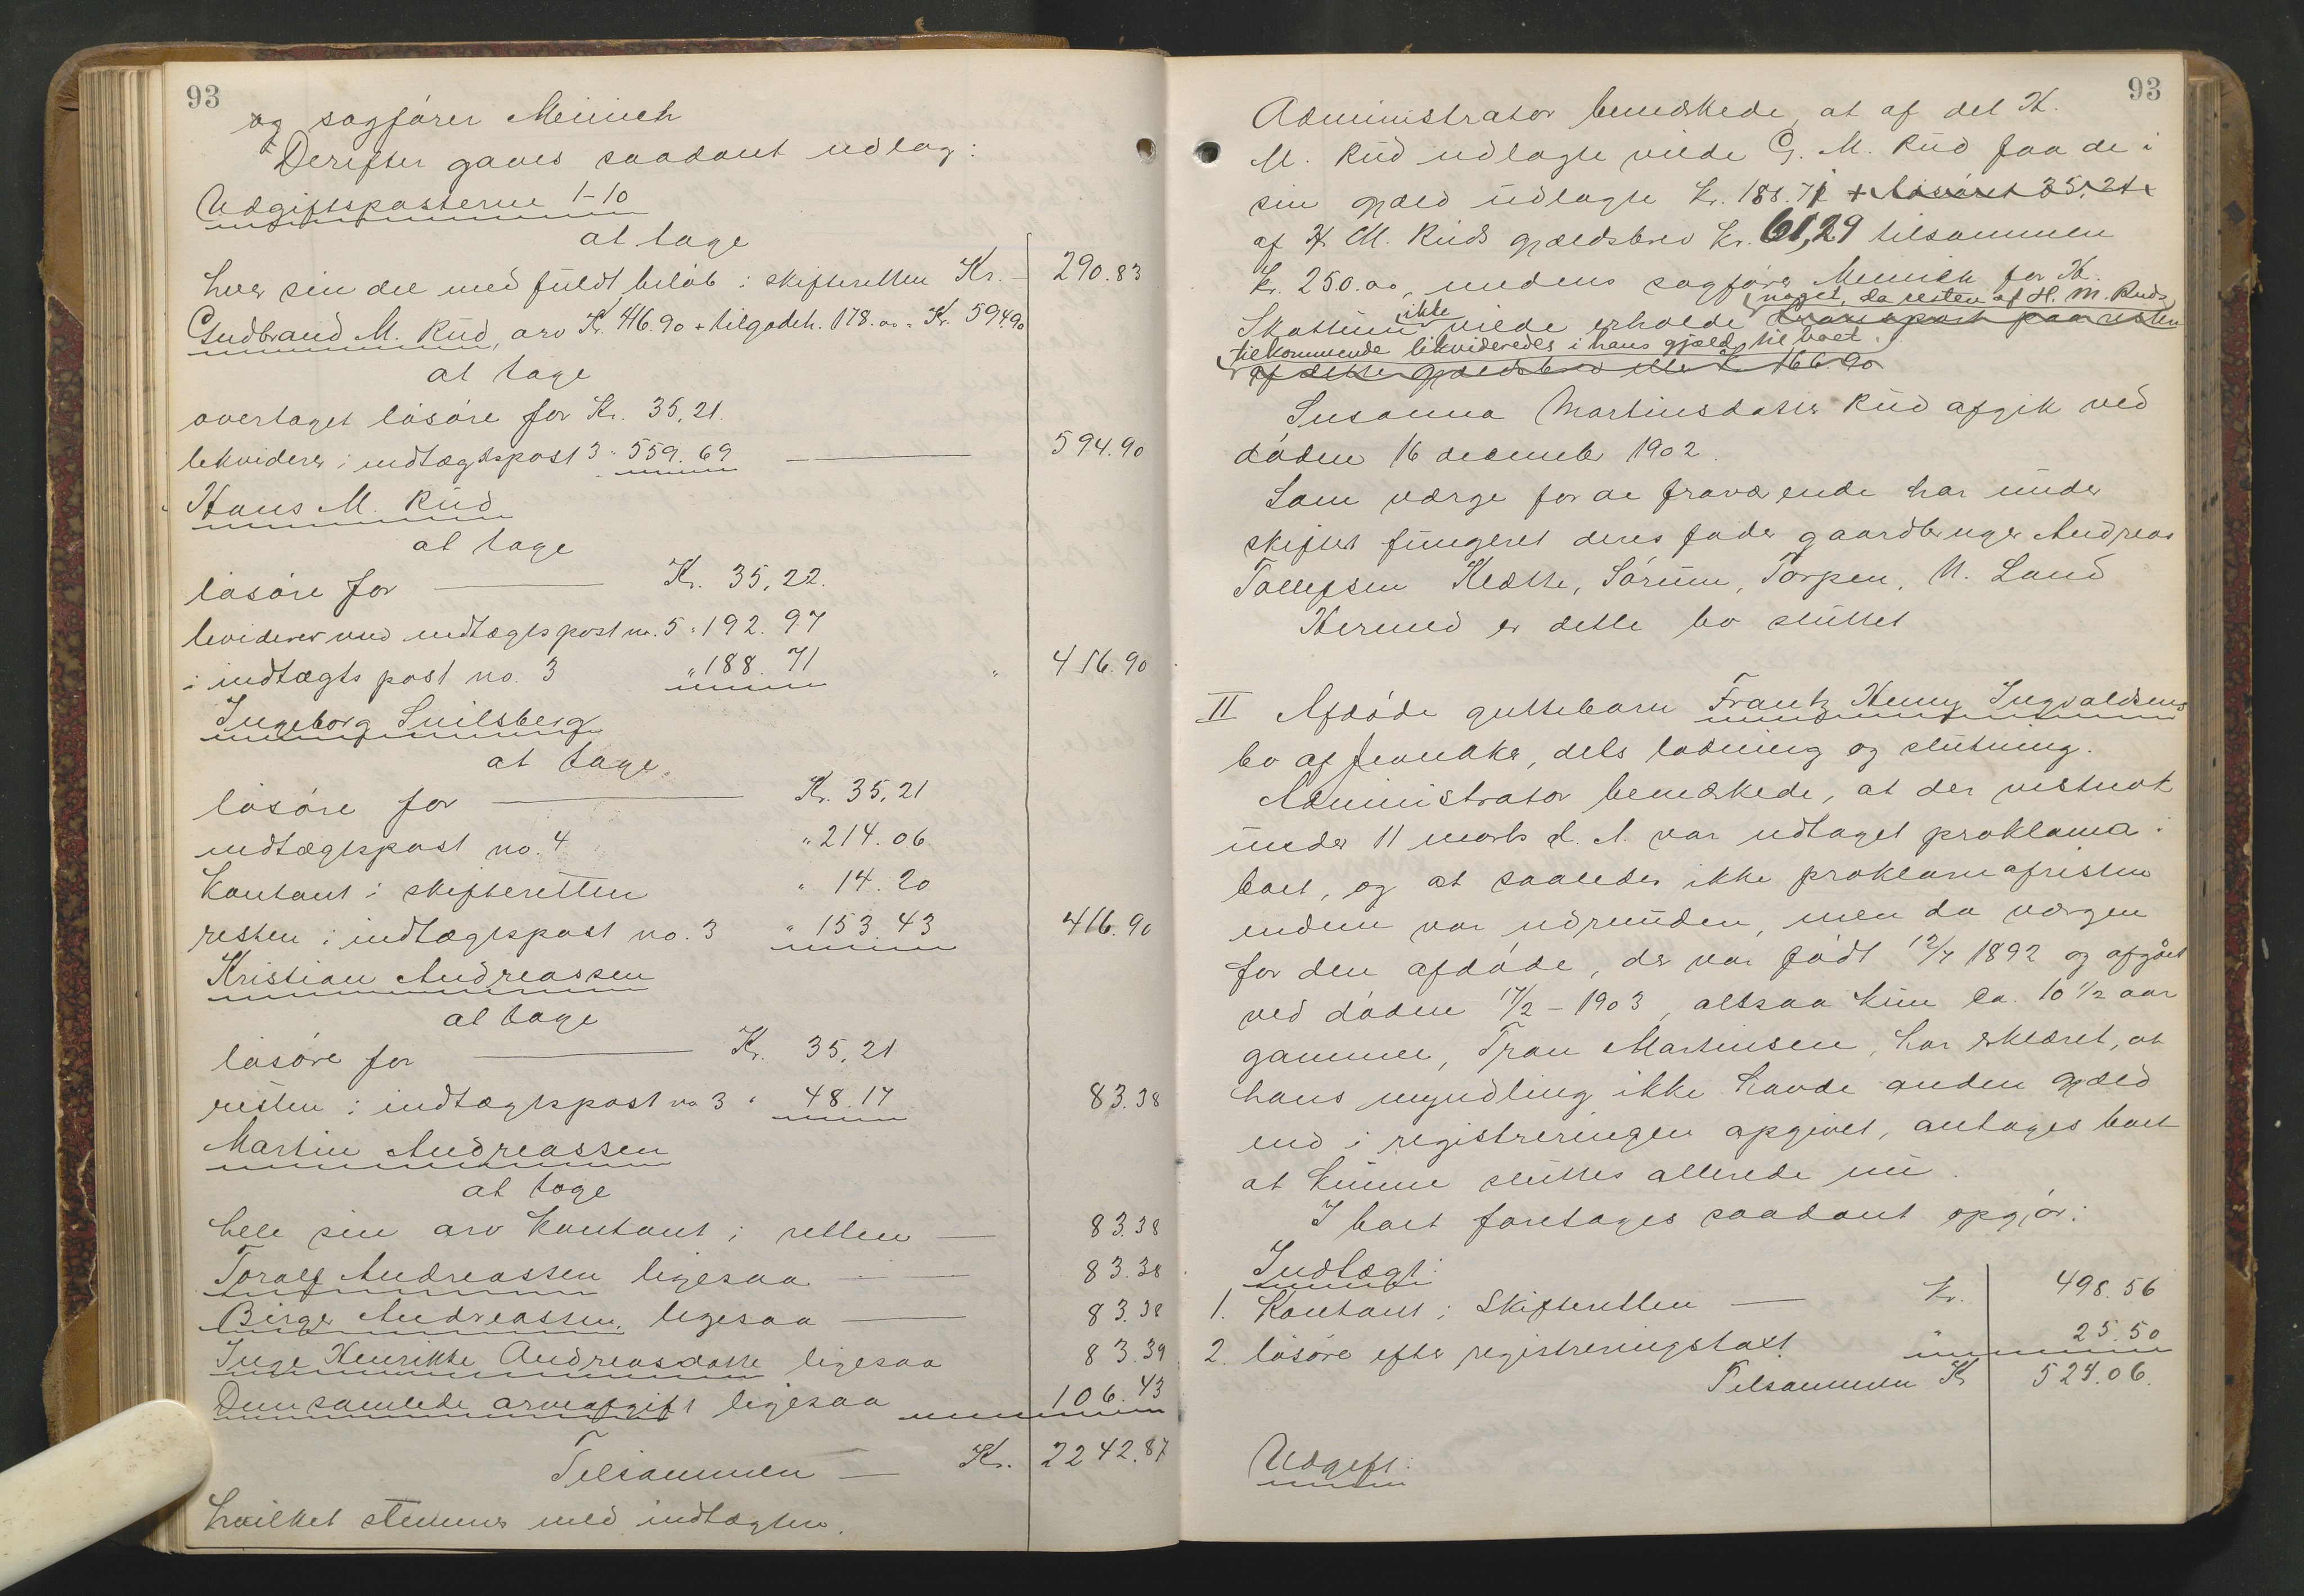 93
og sagfører Meinich
Derefter gaves saadant udlæg:
Udgiftsposterne 1-10
at tage
hver sin del med fuldt beløb i skifteretten Kr. 290.83
Gudbrand M. Rud, arv Kr. 416.90 + tilgodeh. 178.00 = Kr. 594.90
at tage
overtaget løsøre for Kr. 35,21.
likviderer i indtægtspost 3 " 559.69 — 594.90
Hans M. Rud
at tage
løsøre for — Kr. 35,22.
likviderer med indtægtspost no. 5 " 192.97
i indtægtspost no. 3 " 188.71 " 416.90
Ingeborg Smilsberg
at tage
løsøre for — Kr. 35,21
indtægtspost no. 4 " 214.06
kontant i skifteretten " 14.20
resten i indtægtspost no. 3 " 153.43 416.90
Kristian Andreassen
at tage
løsøre for — Kr. 35,21
resten i indtægtspost no 3 " 48.17 83.38
Martin Andreassen
at tage
hele sin arv kontant i retten — 83.38
Toralf Andreassen ligesaa — 83.38
Birger Andreassen, ligesaa — 83.38
Inge Henrikke Andreasdatter ligesaa 83.39
Den samlede arveafgift ligesaa 106.43
Tilsammen — Kr. 2242.87
hvilket stemmer med indtægten.
93
Administrator bemærkede, at af det H.
M. Rud udlagte vilde G. M. Rud faa de i
sin gjæld udlagte kr. 188.71 + løsøret 35,21
af H. M. Ruds gjældsbrev kr. 61,29 tilsammen
kr. 250.00, medens sagfører Meinich for H.
noget, da resten af H. M. Ruds
Skattum ikke vilde erholde transport paa resten
tilkommende likvideredes i hans gjæld til boet.
af dette gjældsbrev eller kr. 166.90
Susanna Martinsdatter Rud afgik ved
døden 16 december 1902.
Som værge for de fraværende har under
skiftet fungeret deres fader gaardbruger Andreas
Tollefsen Klætte, Sørum, Torpen, N. Land
Hermed er dette bo sluttet
II Afdøde guttebarn Frantz Henny Ingvaldsens
bo af Jevnaker, dels lodning og slutning.
Administrator bemærkede, at der vistnok
under 11 marts d. A. var udtaget proklama i
boet, og at saaledes ikke proklamafristen
endnu var udrunden, men da værgen
for den afdøde, der var født 12/7 1892 og afgået
ved døden 17/2 - 1903, altsaa kun ca. 10 1/2 aar
gammel, Tron Martinsen, har erklæret, at
hans myndling ikke havde anden gjæld
end i registreringen opgivet, antages boet
at kunne sluttes allerede nu.
I boet foretages saadant opgjør:
Indtægt:
1. Kontant i Skifteretten — kr. 498.56
2. løsøre efter registreringstaxt " 25.50
Tilsammen Kr 524.06.
Udgift: